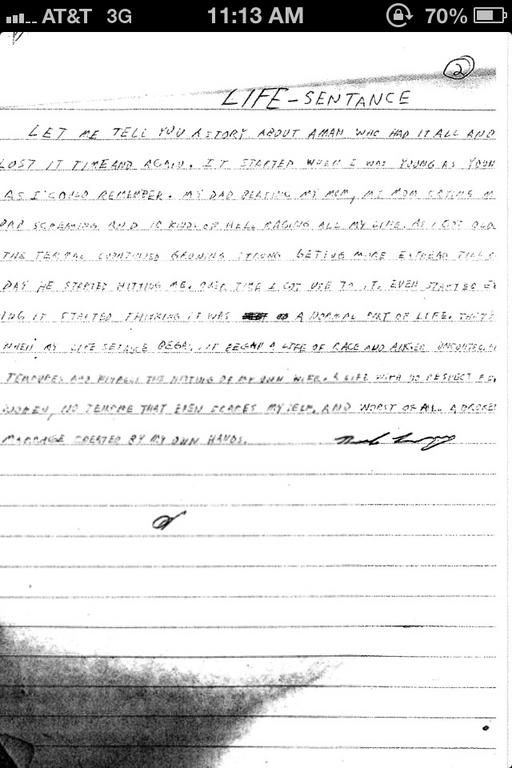 AT&T 3G 11:13 AM 70%
2
LIFE-SENTANCE
LET ME TELL YOU A STORY ABOUT A MAN WHO HAD IT ALL AND
LOST IT TIME AND AGAIN. IT STARTED WHEN I WAS YOUNG AS YOUN
AS I COULD REMEMBER. MY DAD BEATING MY MOM, MY MOM CRYING M
DAD SCREAMING AND 10 KINDS OF HELL RAGING ALL MY LIFE. AS I GOT OLD
THE CONTINUED GROWING STRONG GETING MORE EXTREAM TILL
DAY HE STARTED HITTING ME. OVER TIME I GOT USE TO IT. EVEN STARTED
ING IT STARTED THINKING IT WAS A NORMAL PART OF LIFE. THATS
WHEN MY LIFE BEGAN A LIFE OF RAGE AND ANGER
AND THE HITTING OF MY OWN WIFE. A LIFE WITH NO RESPECT FO
WOMEN, NO THAT EVEN SCARES MYSELF, AND WORST OF ALL A BROKEN
MARRAGE CREATED BY MY OWN HANDS.